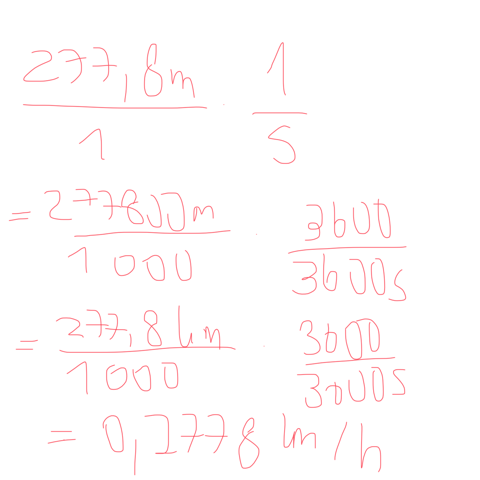 277,8m / 1 · 1 / s
= 277800m / 1000 · 3600 / 3600s
= 277,8km / 1000 · 3600 / 3600s
= 0,2778 km/h